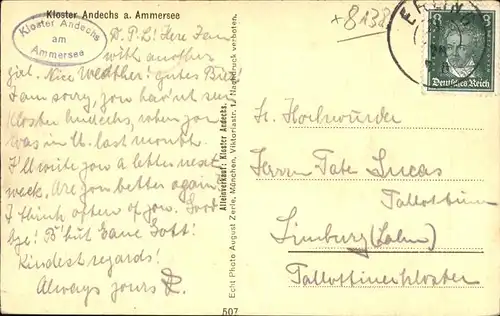 Kloster Andechs a. Ammersee
Kloster Andechs
am
Ammersee
D. P. L! Here I am
with another
girl. Nice Weather! gutes Bier!
I am sorry, you hav'nt seen
Kloster Andechs, when you
was in U. last month.
I'll write you a letter next
week. Are you better again?
I think often of you. Good
bye! B'hüt Eane Gott!
Kindest regards!
Always yours
Alleinverkauf: Kloster Andechs.
Echt Photo August Zerle, München, Viktoriastr. 1, Nachdruck verboten.
507
+8138
ERLING
8 8
Deutsches Reich
Sr. Hochwürden
Herrn Pater Lucas
Pallottiner
Limburg (Lahn)
Pallottinerkloster